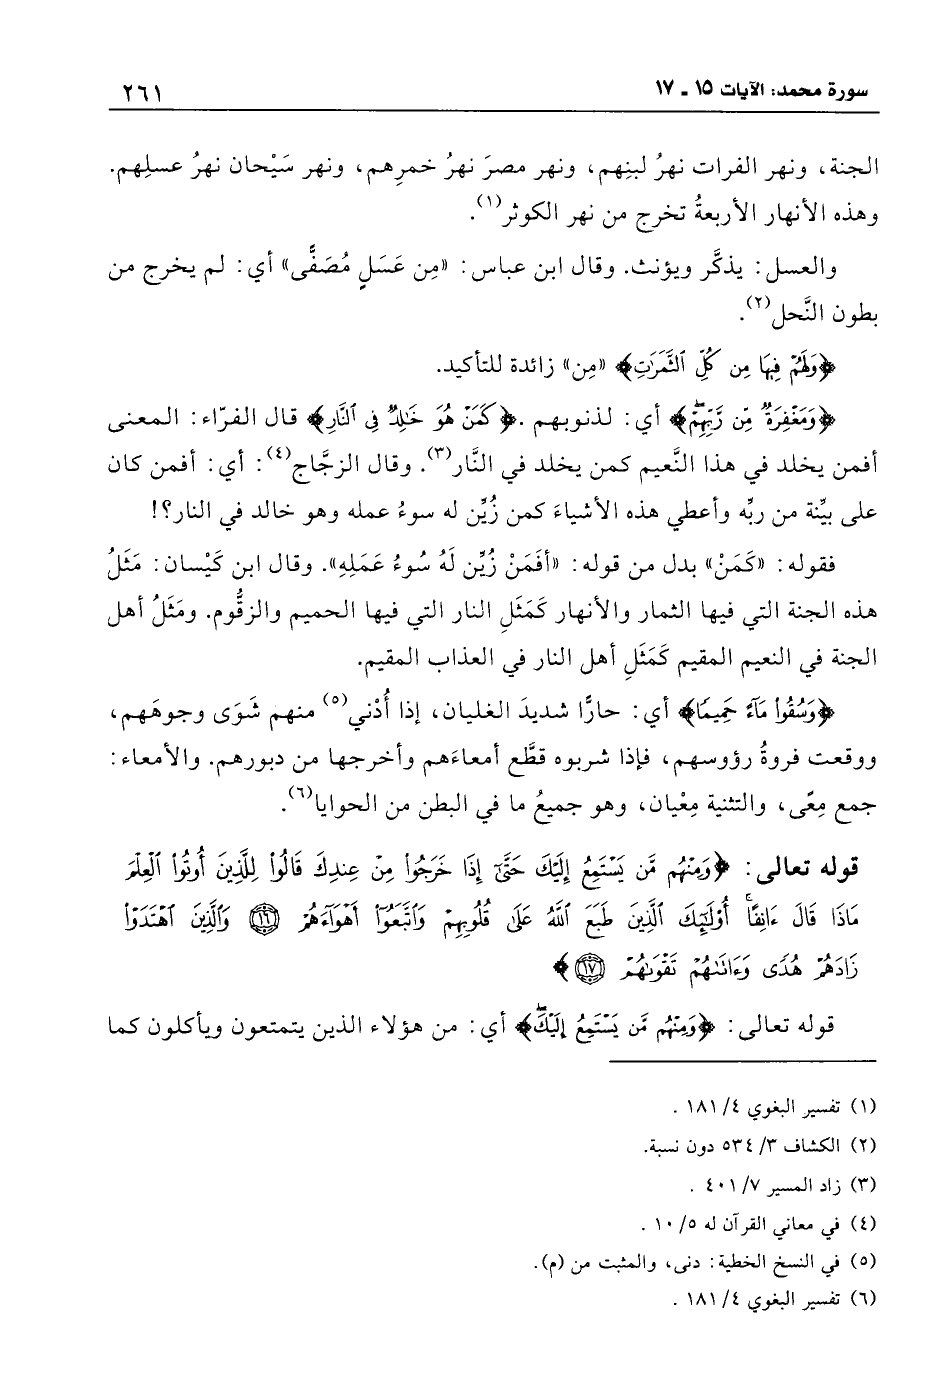 سورة محمد: الآيات ١٥ - ١٧ ٢٦١
الجنة، ونهر الفرات نهرُ لبنِهم، ونهر مصرَ نهرُ خمرِهم، ونهر سَيْحان نهرُ عسلِهم.
وهذه الأنهار الأربعةُ تخرج من نهر الكوثر(١).
والعسل: يذكَّر ويؤنث. وقال ابن عباس: «مِن عَسَلٍ مُصَفًّى» أي: لم يخرج من
بطون النَّحل(٢).
﴿وَلَهُمْ فِيهَا مِن كُلِّ ٱلثَّمَرَٰتِ﴾ «مِن» زائدة للتأكيد.
﴿وَمَغْفِرَةٌ مِّن رَّبِّهِمْۖ﴾ أي: لذنوبهم .﴿كَمَنْ هُوَ خَٰلِدٌ فِي ٱلنَّارِ﴾ قال الفرّاء: المعنى
أفمن يخلد في هذا النَّعيم كمن يخلد في النَّار(٣). وقال الزجَّاج(٤): أي: أفمن كان
على بيِّنة من ربِّه وأعطي هذه الأشياءَ كمن زُيِّن له سوءُ عمله وهو خالد في النار؟!
فقوله: «كَمَنْ» بدل من قوله: «أفَمَنْ زُيِّن لَهُ سُوءُ عَمَلِهِ». وقال ابن كَيْسان: مَثَلُ
هذه الجنة التي فيها الثمار والأنهار كَمَثَلِ النار التي فيها الحميم والزقُّوم. ومَثَلُ أهل
الجنة في النعيم المقيم كَمَثَلِ أهل النار في العذاب المقيم.
﴿وَسُقُوا۟ مَآءً حَمِيمًا﴾ أي: حارًّا شديدَ الغليان، إذا أُدْني(٥) منهم شَوَى وجوهَهم،
ووقعت فروةُ رؤوسهم، فإذا شربوه قطَّع أمعاءَهم وأخرجها من دبورهم. والأمعاء:
جمع مِعًى، والتثنية مِعْيان، وهو جميعُ ما في البطن من الحوايا(٦).
قوله تعالى: ﴿وَمِنْهُم مَّن يَسْتَمِعُ إِلَيْكَ حَتَّىٰٓ إِذَا خَرَجُوا۟ مِنْ عِندِكَ قَالُوا۟ لِلَّذِينَ أُوتُوا۟ ٱلْعِلْمَ
مَاذَا قَالَ ءَانِفًاۚ أُو۟لَٰٓئِكَ ٱلَّذِينَ طَبَعَ ٱللَّهُ عَلَىٰ قُلُوبِهِمْ وَٱتَّبَعُوٓا۟ أَهْوَآءَهُمْ ١٦ وَٱلَّذِينَ ٱهْتَدَوْا۟
زَادَهُمْ هُدًى وَءَاتَىٰهُمْ تَقْوَىٰهُمْ ١٧﴾
قوله تعالى: ﴿وَمِنْهُم مَّن يَسْتَمِعُ إِلَيْكَۖ﴾ أي: من هؤلاء الذين يتمتعون ويأكلون كما
(١) تفسير البغوي ٤/ ١٨١ .
(٢) الكشاف ٣/ ٥٣٤ دون نسبة.
(٣) زاد المسير ٧/ ٤٠١ .
(٤) في معاني القرآن له ٥/ ١٠ .
(٥) في النسخ الخطية: دنى، والمثبت من (م).
(٦) تفسير البغوي ٤/ ١٨١ .